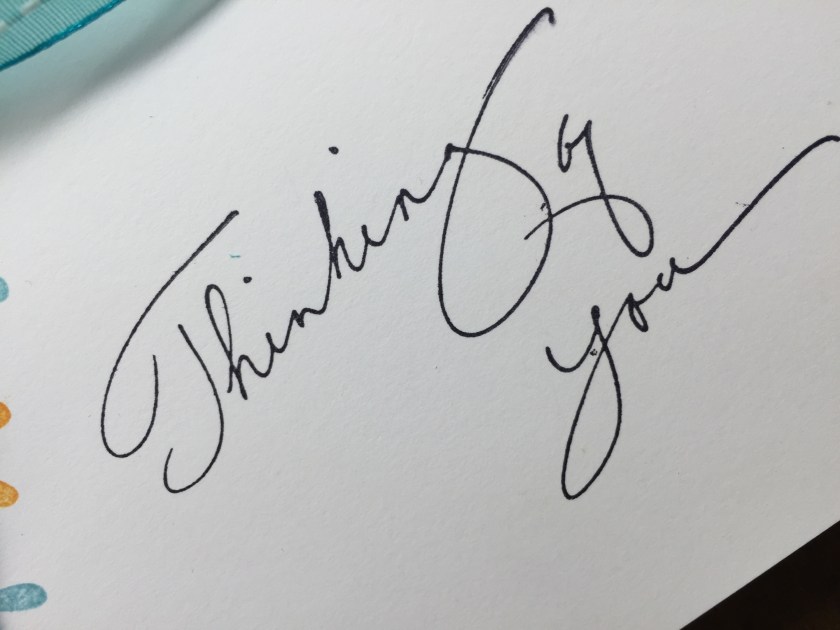 Thinking of
you